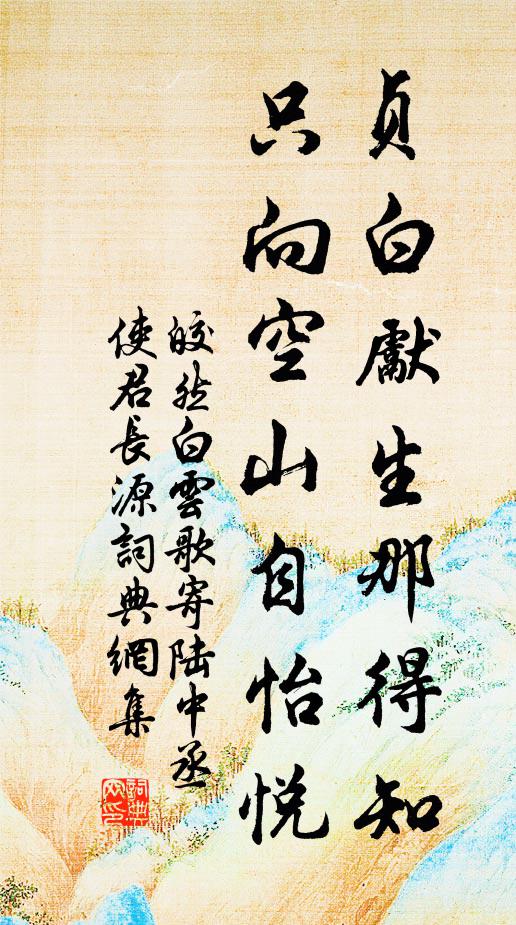 貞白獻生那得知
只向空山自怡悅
皎然白雲歌寄陸中丞
使君長源詞典網集
詞典
网印